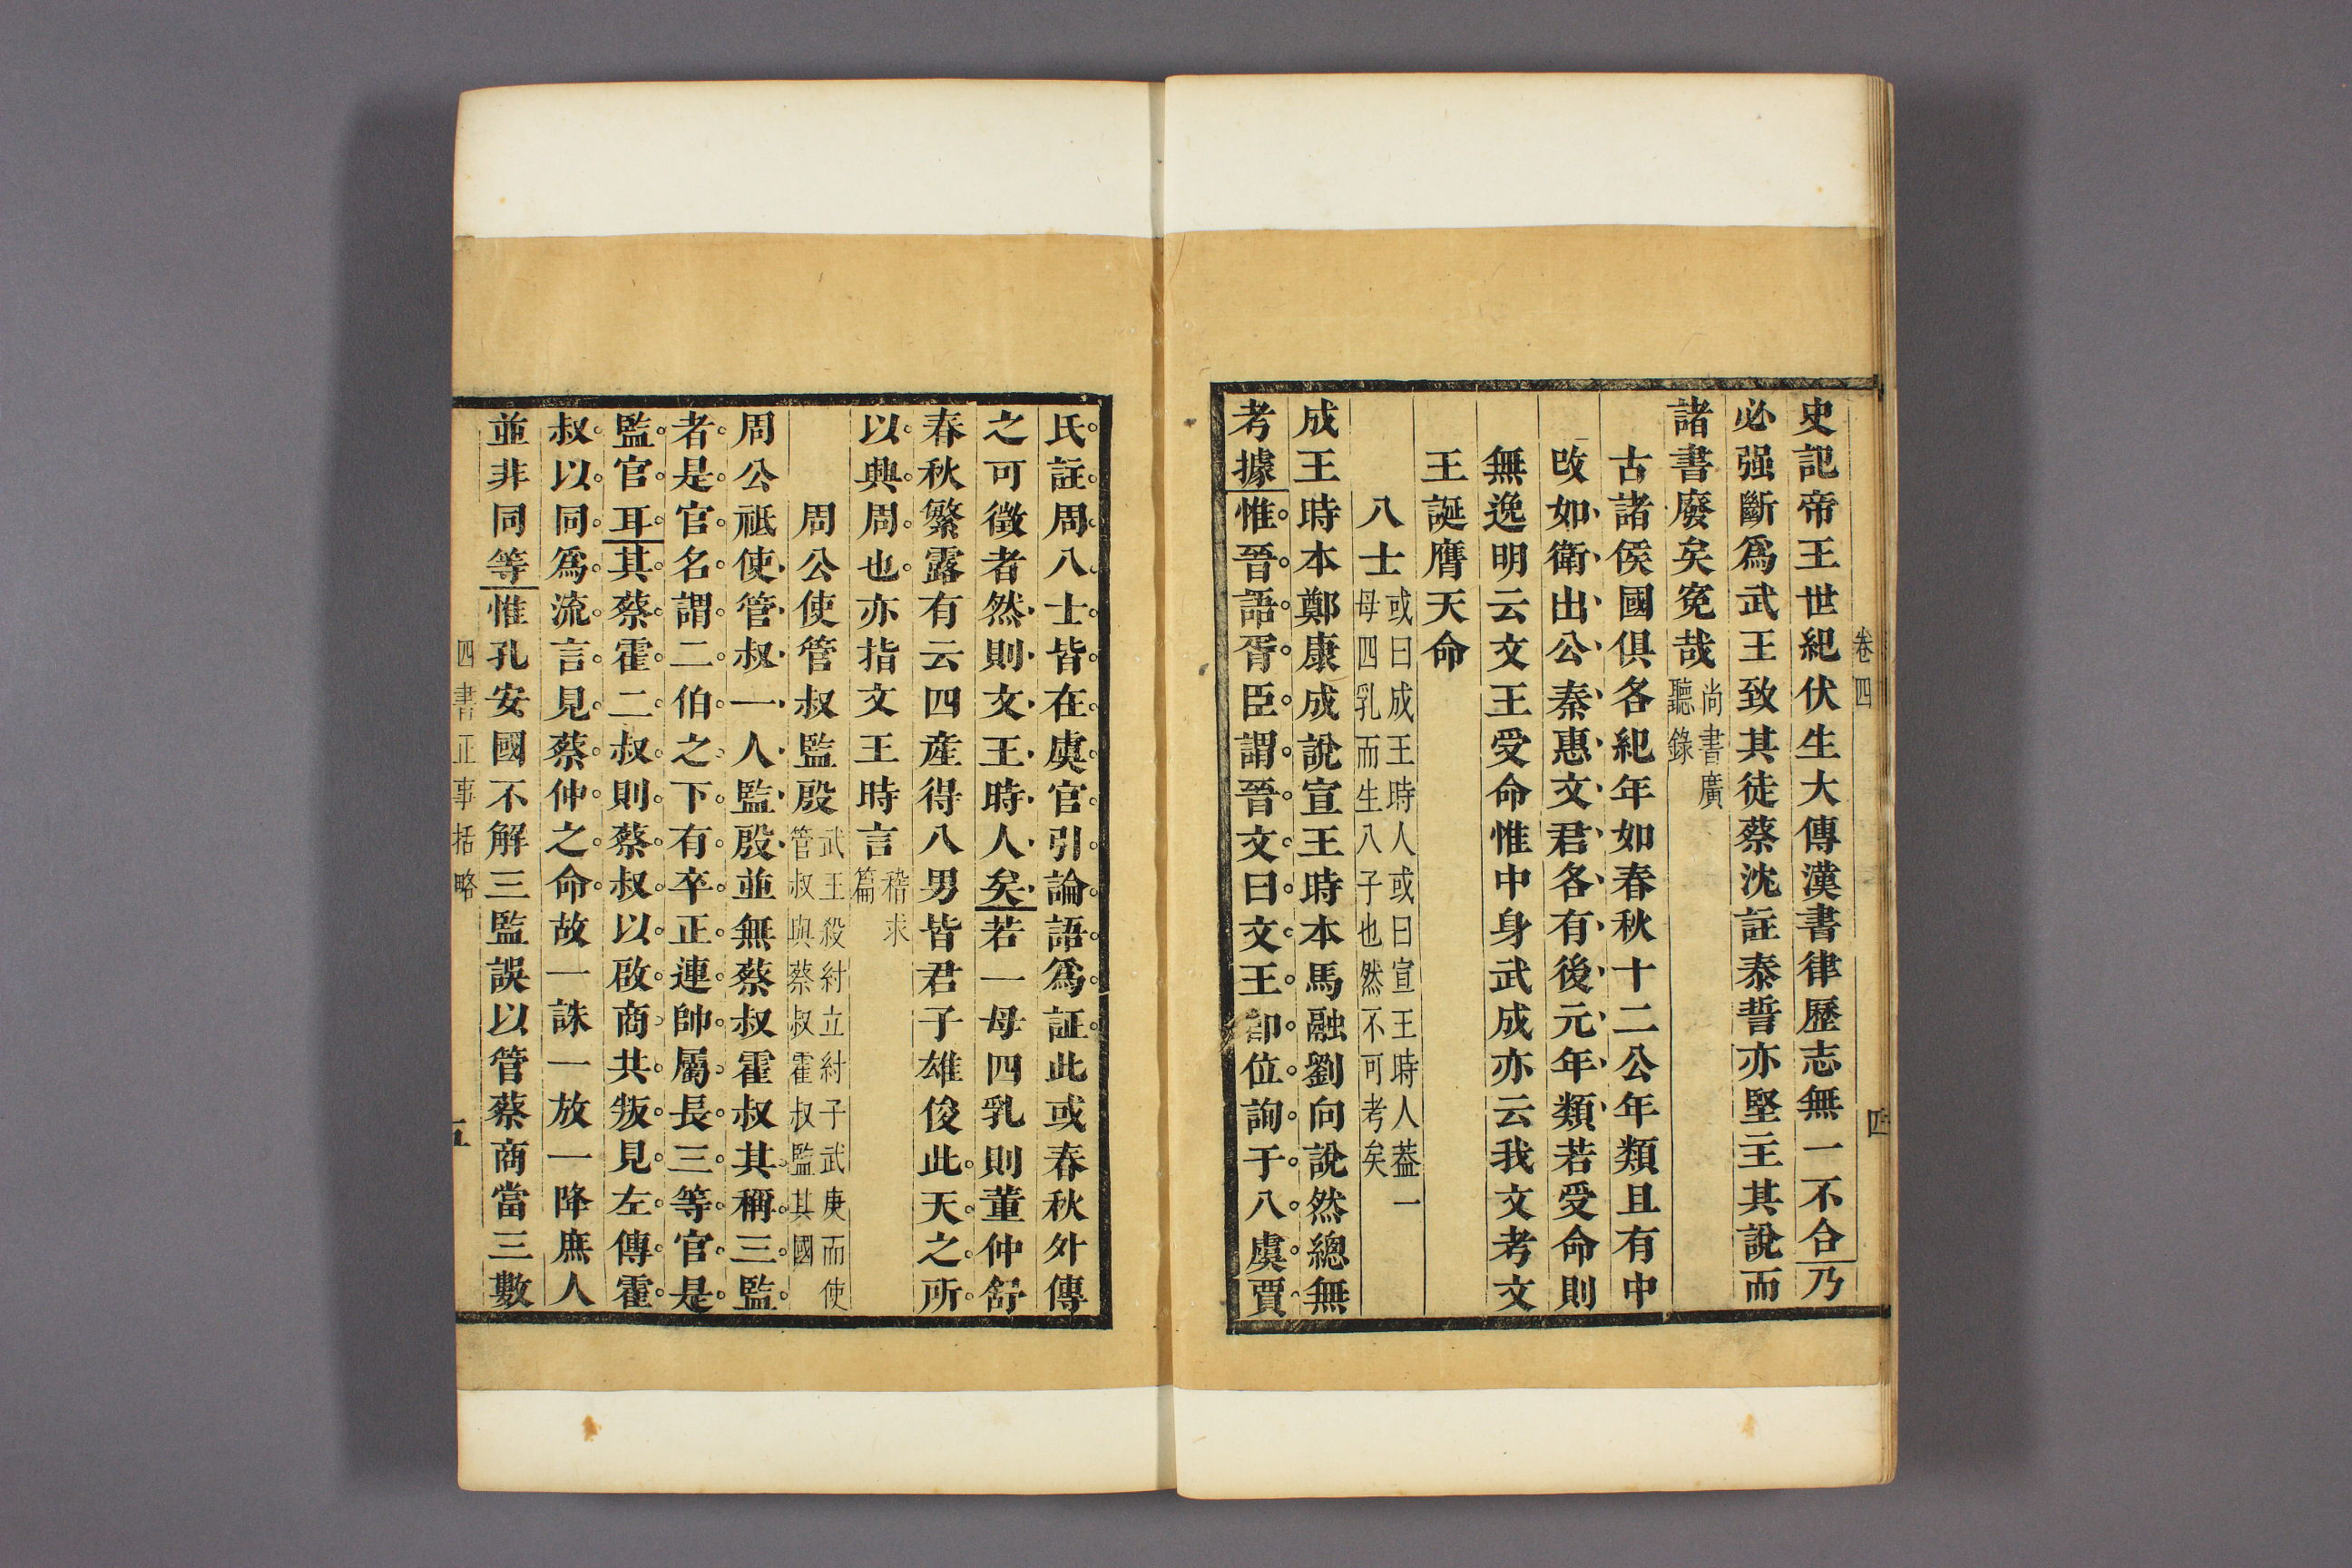 卷四
四
史記帝王世紀伏生大傳漢書律歷志無一不合乃
必强斷爲武王致其徒蔡沈註泰誓亦堅主其說而
諸書廢矣寃哉尚書廣聽錄
古諸侯國俱各紀年如春秋十二公年類且有中
改如衛出公秦惠文君各有後元年類若受命則
無逸明云文王受命惟中身武成亦云我文考文
王誕膺天命
八士或曰成王時人或曰宣王時人葢一母四乳而生八子也然不可考矣
成王時本鄭康成說宣王時本馬融劉向說然總無
考據惟晉語胥臣謂晉文曰文王卽位詢于八虞賈
氏註周八士皆在虞官引論語爲証此或春秋外傳
之可徵者然則文王時人矣若一母四乳則董仲舒
春秋繁露有云四産得八男皆君子雄俊此天之所
以興周也亦指文王時言稽求篇
周公使管叔監殷武王殺紂立紂子武庚而使管叔與蔡叔霍叔監其國
周公祗使管叔一人監殷並無蔡叔霍叔其稱三監
者是官名謂二伯之下有卒正連帥屬長三等官是
監官耳其蔡霍二叔則蔡叔以啟商共叛見左傳霍
叔以同爲流言見蔡仲之命故一誅一放一降庶人
並非同等惟孔安國不解三監誤以管蔡商當三數
四書正事括略
五